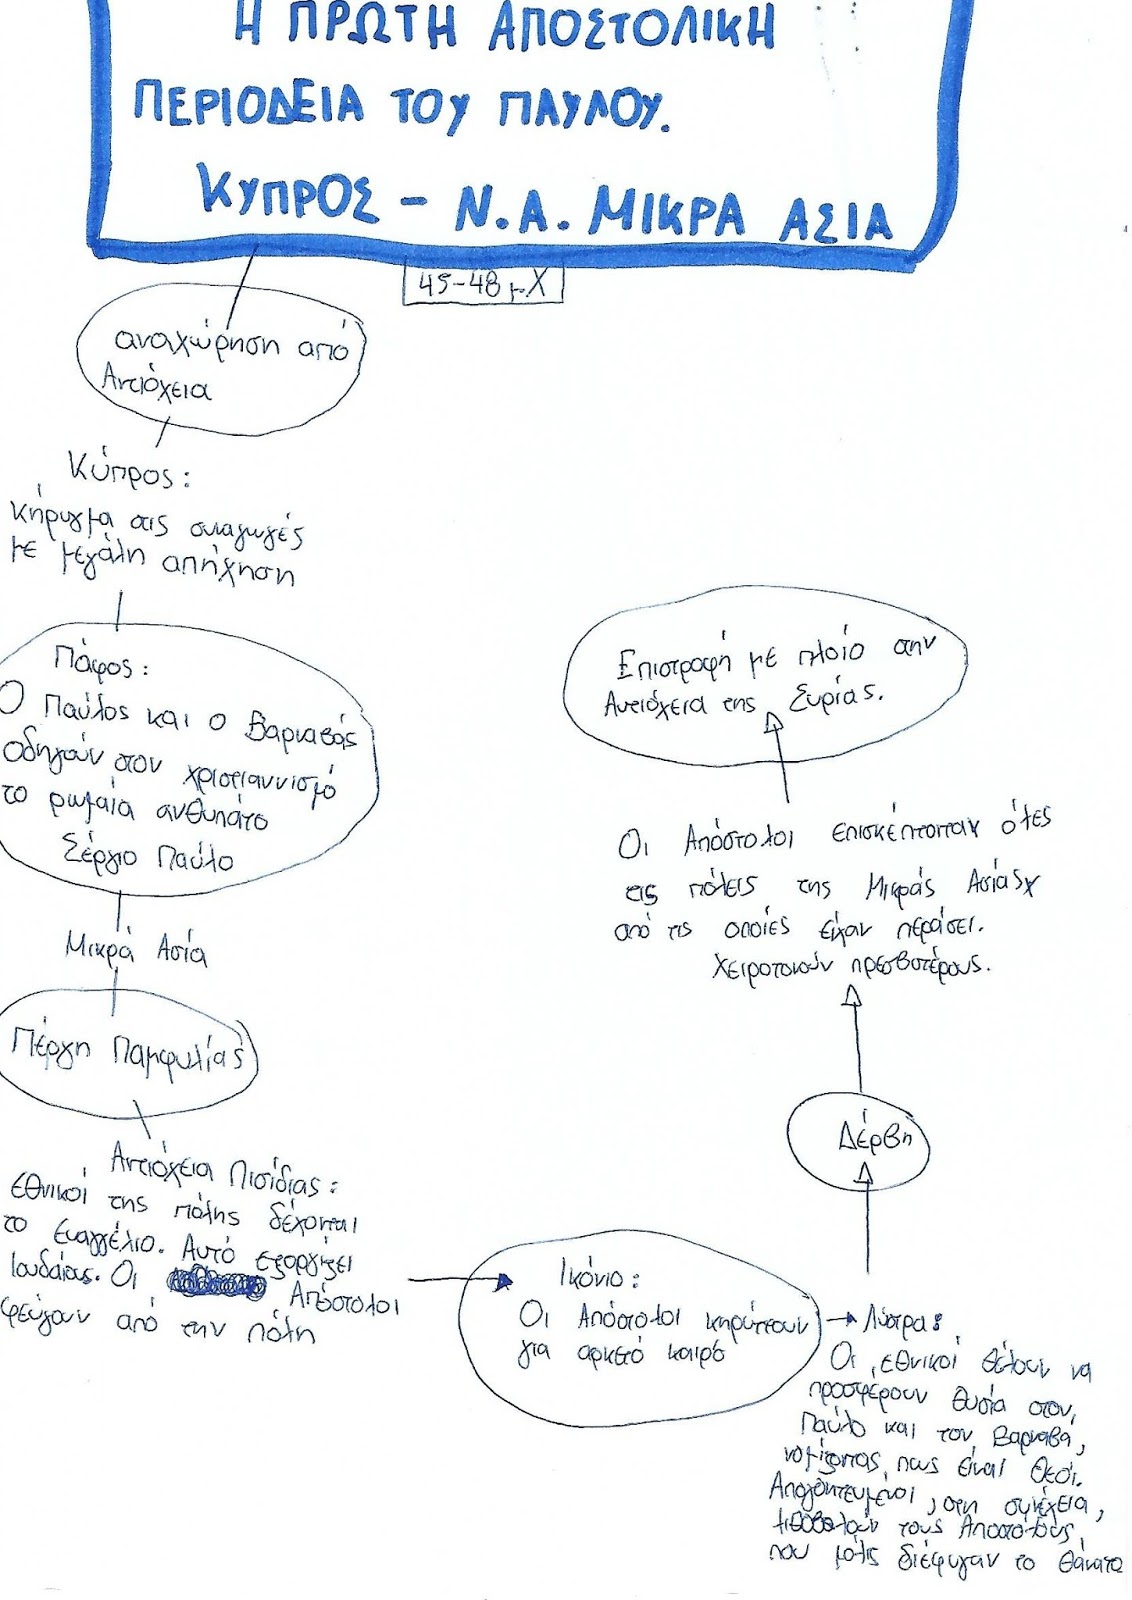 Η ΠΡΩΤΗ ΑΠΟΣΤΟΛΙΚΗ
ΠΕΡΙΟΔΕΙΑ ΤΟΥ ΠΑΥΛΟΥ.
ΚΥΠΡΟΣ - Ν.Α. ΜΙΚΡΑ ΑΣΙΑ
45-48 μ.Χ
αναχώρηση από
Αντιόχεια
Κύπρος:
κήρυγμα στις συναγωγές
με μεγάλη απήχηση
Πάφος:
Ο Παύλος και ο Βαρναβάς
οδηγούν στον χριστιαννισμό
το ρωμαίο ανθυπάτο
Σέργιο Παύλο
Μικρά Ασία
Πέργη Παμφυλίας
Αντιόχεια Πισίδιας:
εθνικοί της πόλης δέχονται
το Ευαγγέλιο. Αυτό εξοργίζει
Ιουδαίους. Οι Απόστολοι
φεύγουν από την πόλη
Ικόνιο:
Οι Απόστολοι κηρύττουν
για αρκετό καιρό
Λύστρα:
Οι εθνικοί θέλουν να
προσφέρουν θυσία στον
Παύλο και τον Βαρναβά,
νομίζοντας πως είναι θεοί.
Απογοητευμένοι, στη συνέχεια,
λιθοβολούν τους Αποστόλους,
που μόλις διέφυγαν το θάνατο
Δέρβη
Οι Απόστολοι επισκέπτονται όλες
τις πόλεις της Μικράς Ασίας
από τις οποίες είχαν περάσει.
Χειροτονούν πρεσβυτέρους.
Επιστροφή με πλοίο στην
Αντιόχεια της Συρίας.